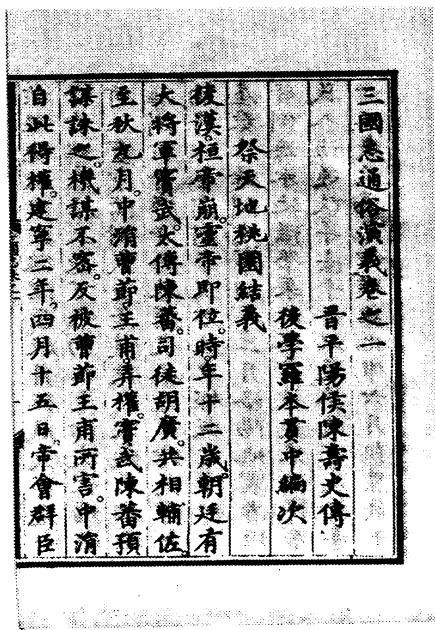 三國志通俗演義卷之一
晉平陽侯陳壽史傳
後學羅本貫中編次
祭天地桃園結義
後漢桓帝崩。靈帝即位。時年十二歲。朝廷有
大將軍竇武。太傅陳蕃。司徒胡廣。共相輔佐。
至秋九月。中涓曹節王甫弄權。竇武陳蕃預
謀誅之。機謀不密。反被曹節王甫所害。中涓
自此得權。建寧二年。四月十五日。帝會群臣